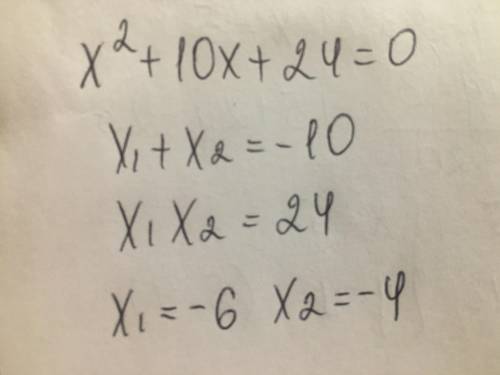 x² + 10x + 24 = 0
x₁ + x₂ = -10
x₁ x₂ = 24
x₁ = -6 x₂ = -4